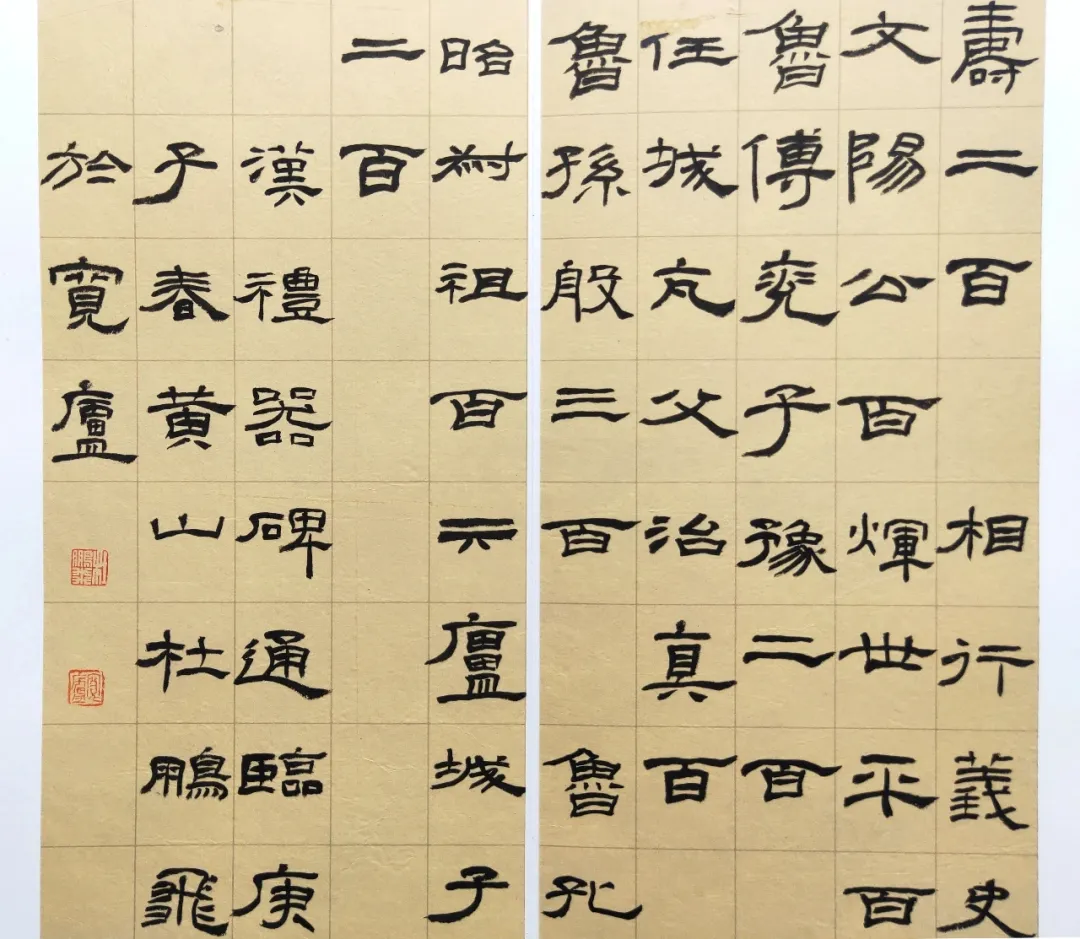 壽二百 相行義史
文陽公百煇世平百
魯傅兗子豫二百
任城亢父治真百
魯孫殷三百 魯孔
昭叔祖百亓廬城子
二百
漢禮器碑通臨庚
子春黃山杜鵬飛
於寬廬